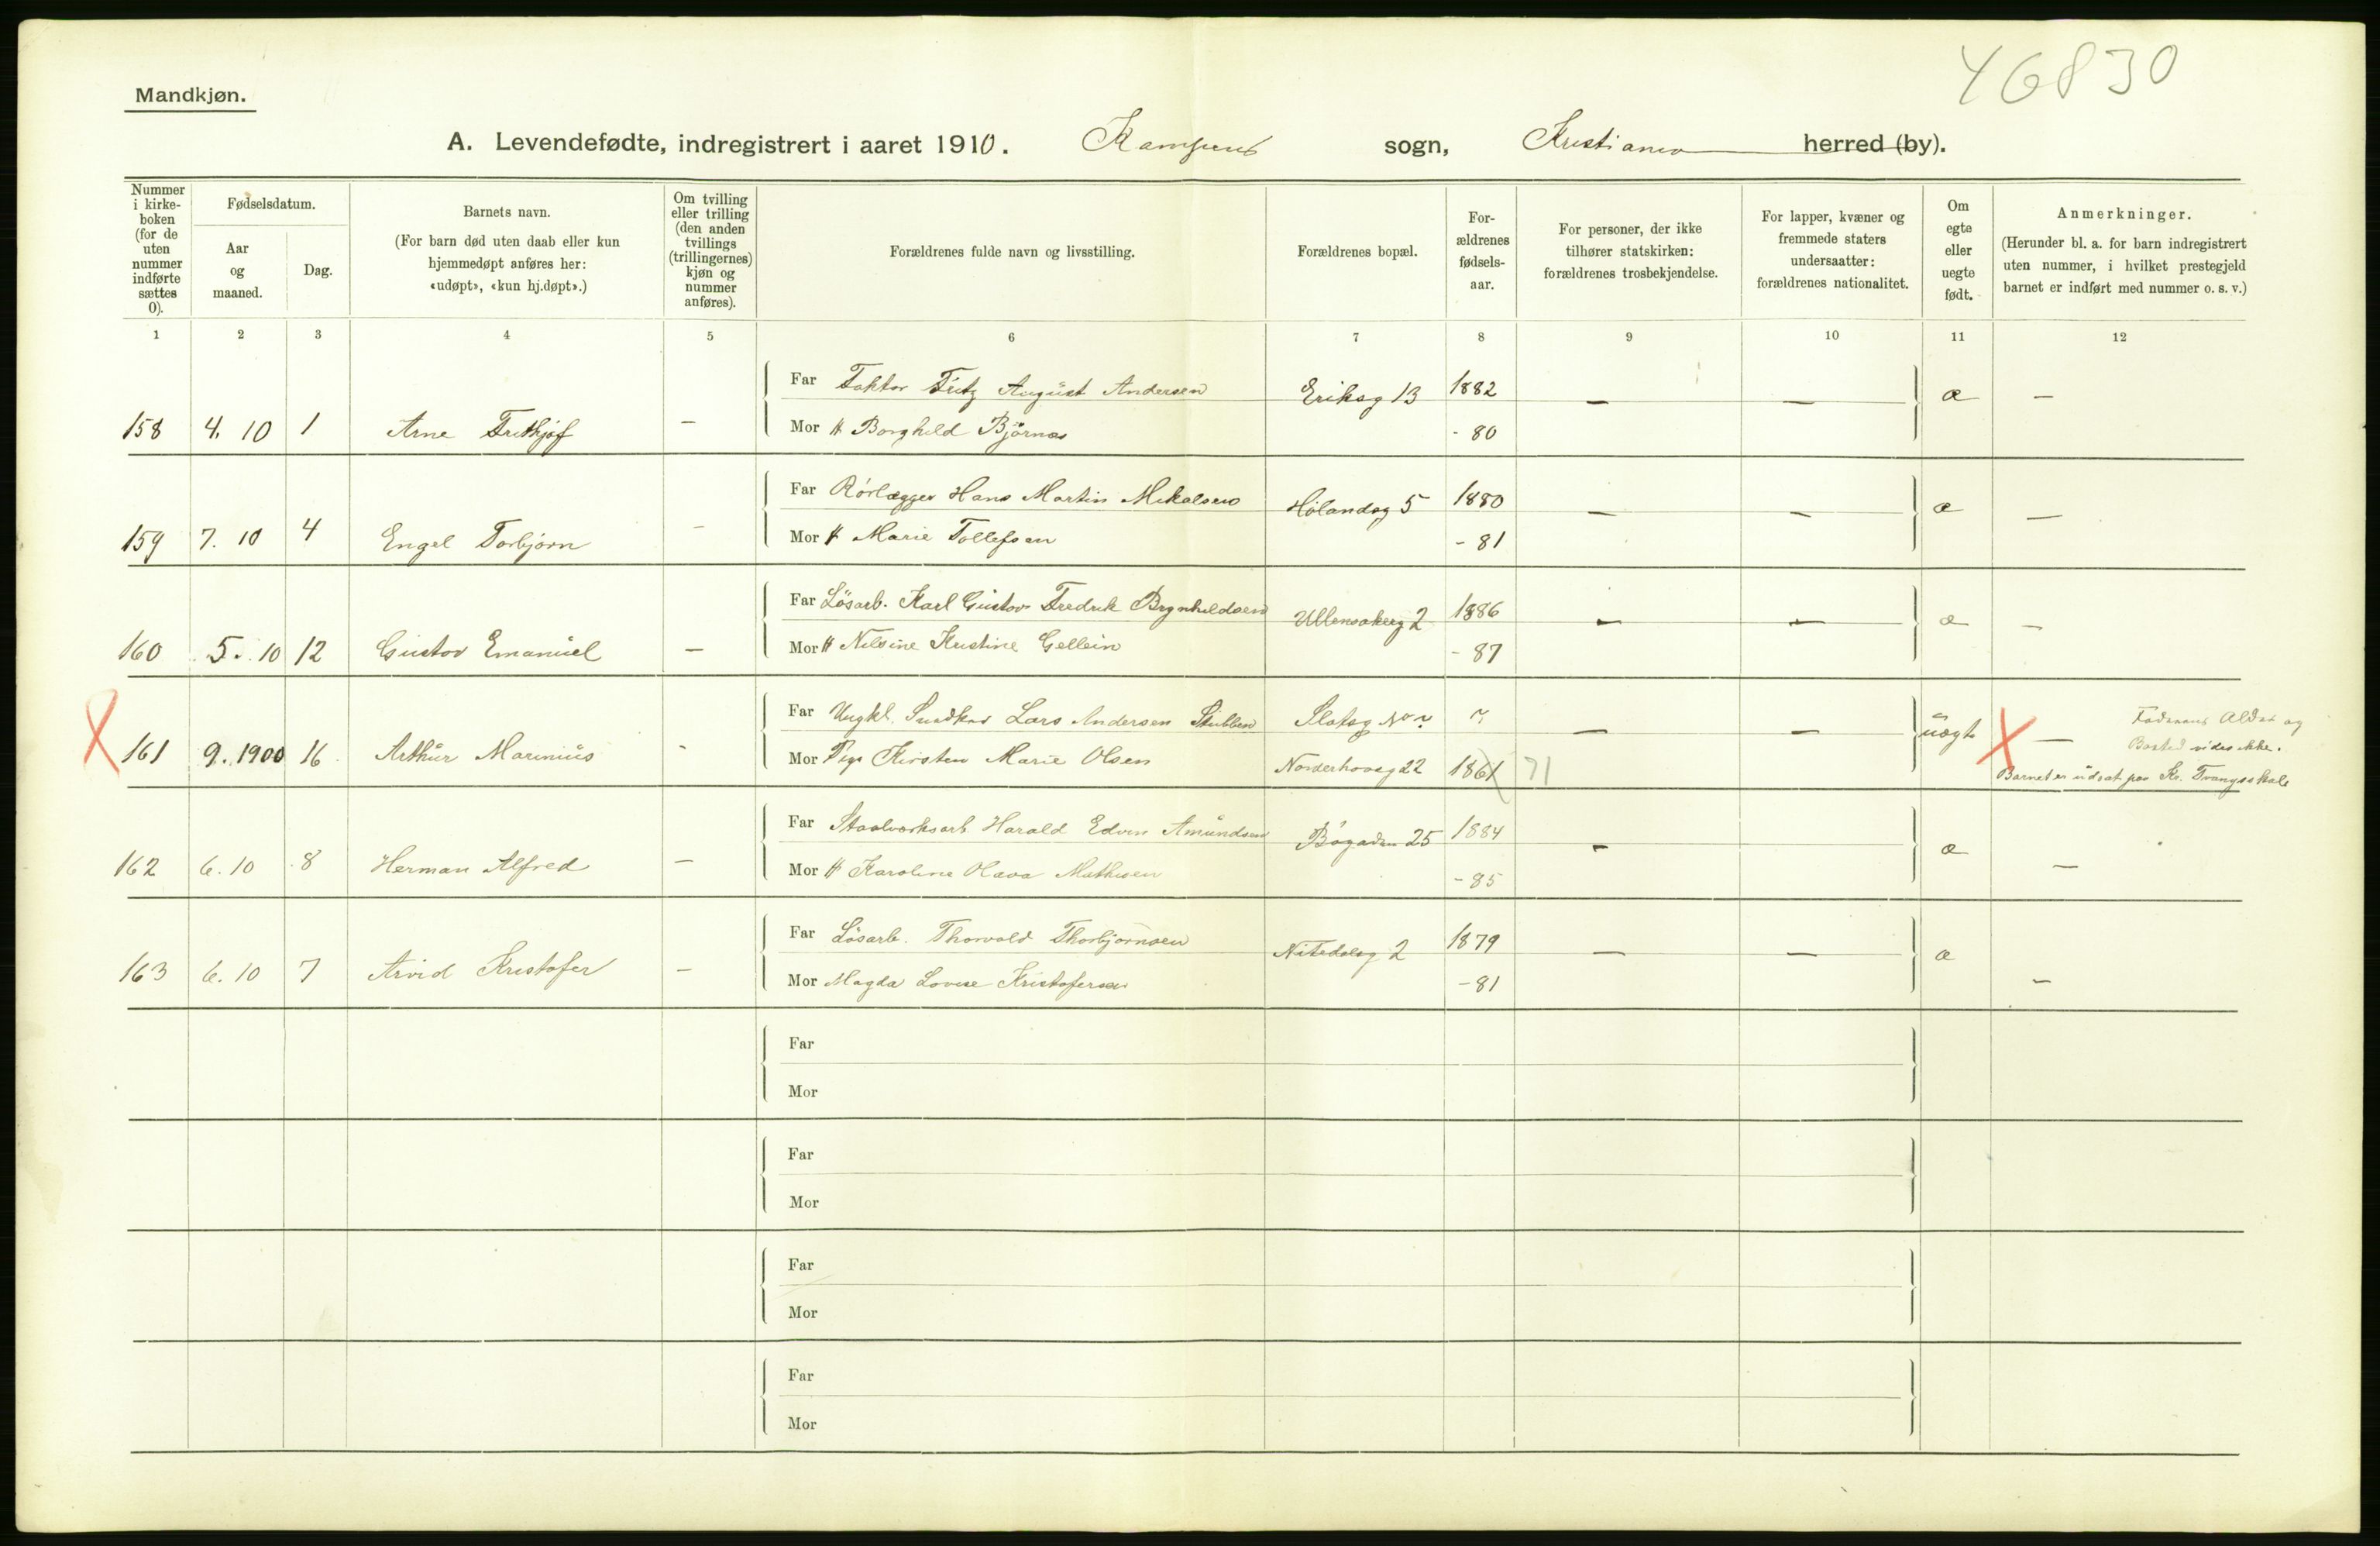 46830
Mandkjøn.
A. Levendefødte, indregistrert i aaret 1910. Kampens sogn, Kristiania herred (by).
Nummer i kirke-boken (for de uten nummer indførte sættes 0).
Fødselsdatum.
Aar og maaned.
Dag.
Barnets navn.
(For barn død uten daab eller kun hjemmedøpt anføres her: «udøpt», «kun hj.døpt».)
Om tvilling eller trilling (den anden tvillings (trillingernes) kjøn og nummer anføres).
Forældrenes fulde navn og livsstilling.
Forældrenes bopæl.
For-ældrenes fødsels-aar.
For personer, der ikke tilhører statskirken: forældrenes trosbekjendelse.
For lapper, kvæner og fremmede staters undersaatter: forældrenes nationalitet.
Om egte eller uegte født.
Anmerkninger.
(Herunder bl. a. for barn indregistrert uten nummer, i hvilket prestegjeld barnet er indført med nummer o. s. v.)
1 2 3 4 5 6 7 8 9 10 11 12
Far Faktor Fritz August Andersen Eriksg 13 1882 — — æ —
158 4. 10 1 Arne Frithjof — Mor H Borghild Bjørnas - 80
Far Rørlægger Hans Martin Mikalsen Hølandsg 5 1880 — — æ —
159 7. 10 4 Engel Torbjørn — Mor H Marie Tollefsen - 81
Far Løsarb. Karl Gustav Fredrik Brynhildsen Ullensakerg 2 1886 — — æ —
160 5. 10 12 Gustav Emanuel — Mor H Nilsine Kristine Gellein - 87
Far Ungkl. Lars Andersen Stubben Slotsg No ? ? — — uægte — Faderens Alder og Bosted vides ikke.
161 9. 1900 16 Arthur Marinius - Mor Pige Kirsten Marie Olsen Norderhovsg 22 1861 71 Barnet er udsat paa Kr. Tvangsskole
Far Staalverksarb Harald Edvin Amundsen Bøgaden 25 1884 — æ —
162 6. 10 8 Herman Alfred — Mor H Karoline Olava Mathisen - 85
Far Løsarb. Thorvald Thorbjørnsen Nitedalsg 2 1879 — — æ —
163 6. 10 7 Arvid Kristofer — Mor Magda Lovise Kristofersen - 81
Far
Mor
Far
Mor
Far
Mor
Far
Mor